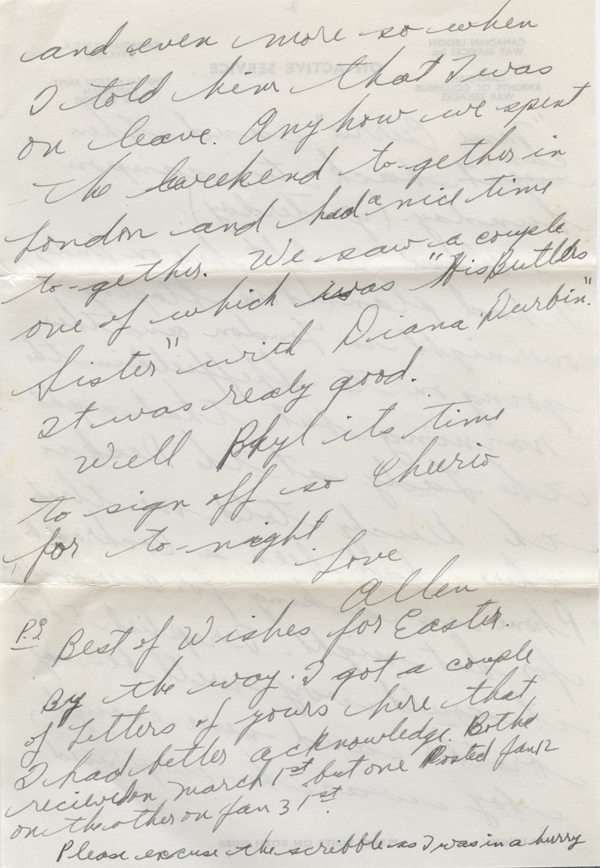 and even more so when
I told him that I was
on leave. Anyhow we spent
the weekend to-gether in
London and had a nice time
to-gether. We saw a couple
one of which was "His Butlers
Sister" with Diana Durbin".
It was realy good.
Well Phyl its time
to sign off so Cheerio
for to-night
Love
Allen
P.S. Best of Wishes for Easter.
By the way. I got a couple
of letters of yours here that
I had better acknowledge. Bothe
recieved on march 1st but one Posted Jan 12
on the other on Jan 31st.
Please excuse the scribble as I was in a hurry